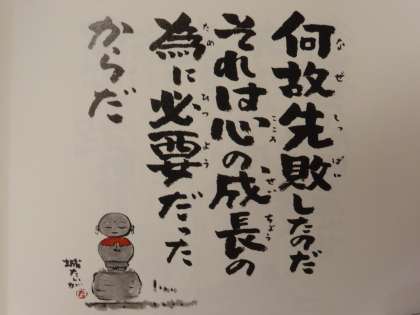 何故失敗したのだ
それは心の成長の
為に必要だった
からだ
なぜ しっぱい
こころ せいちょう
ため ひつよう